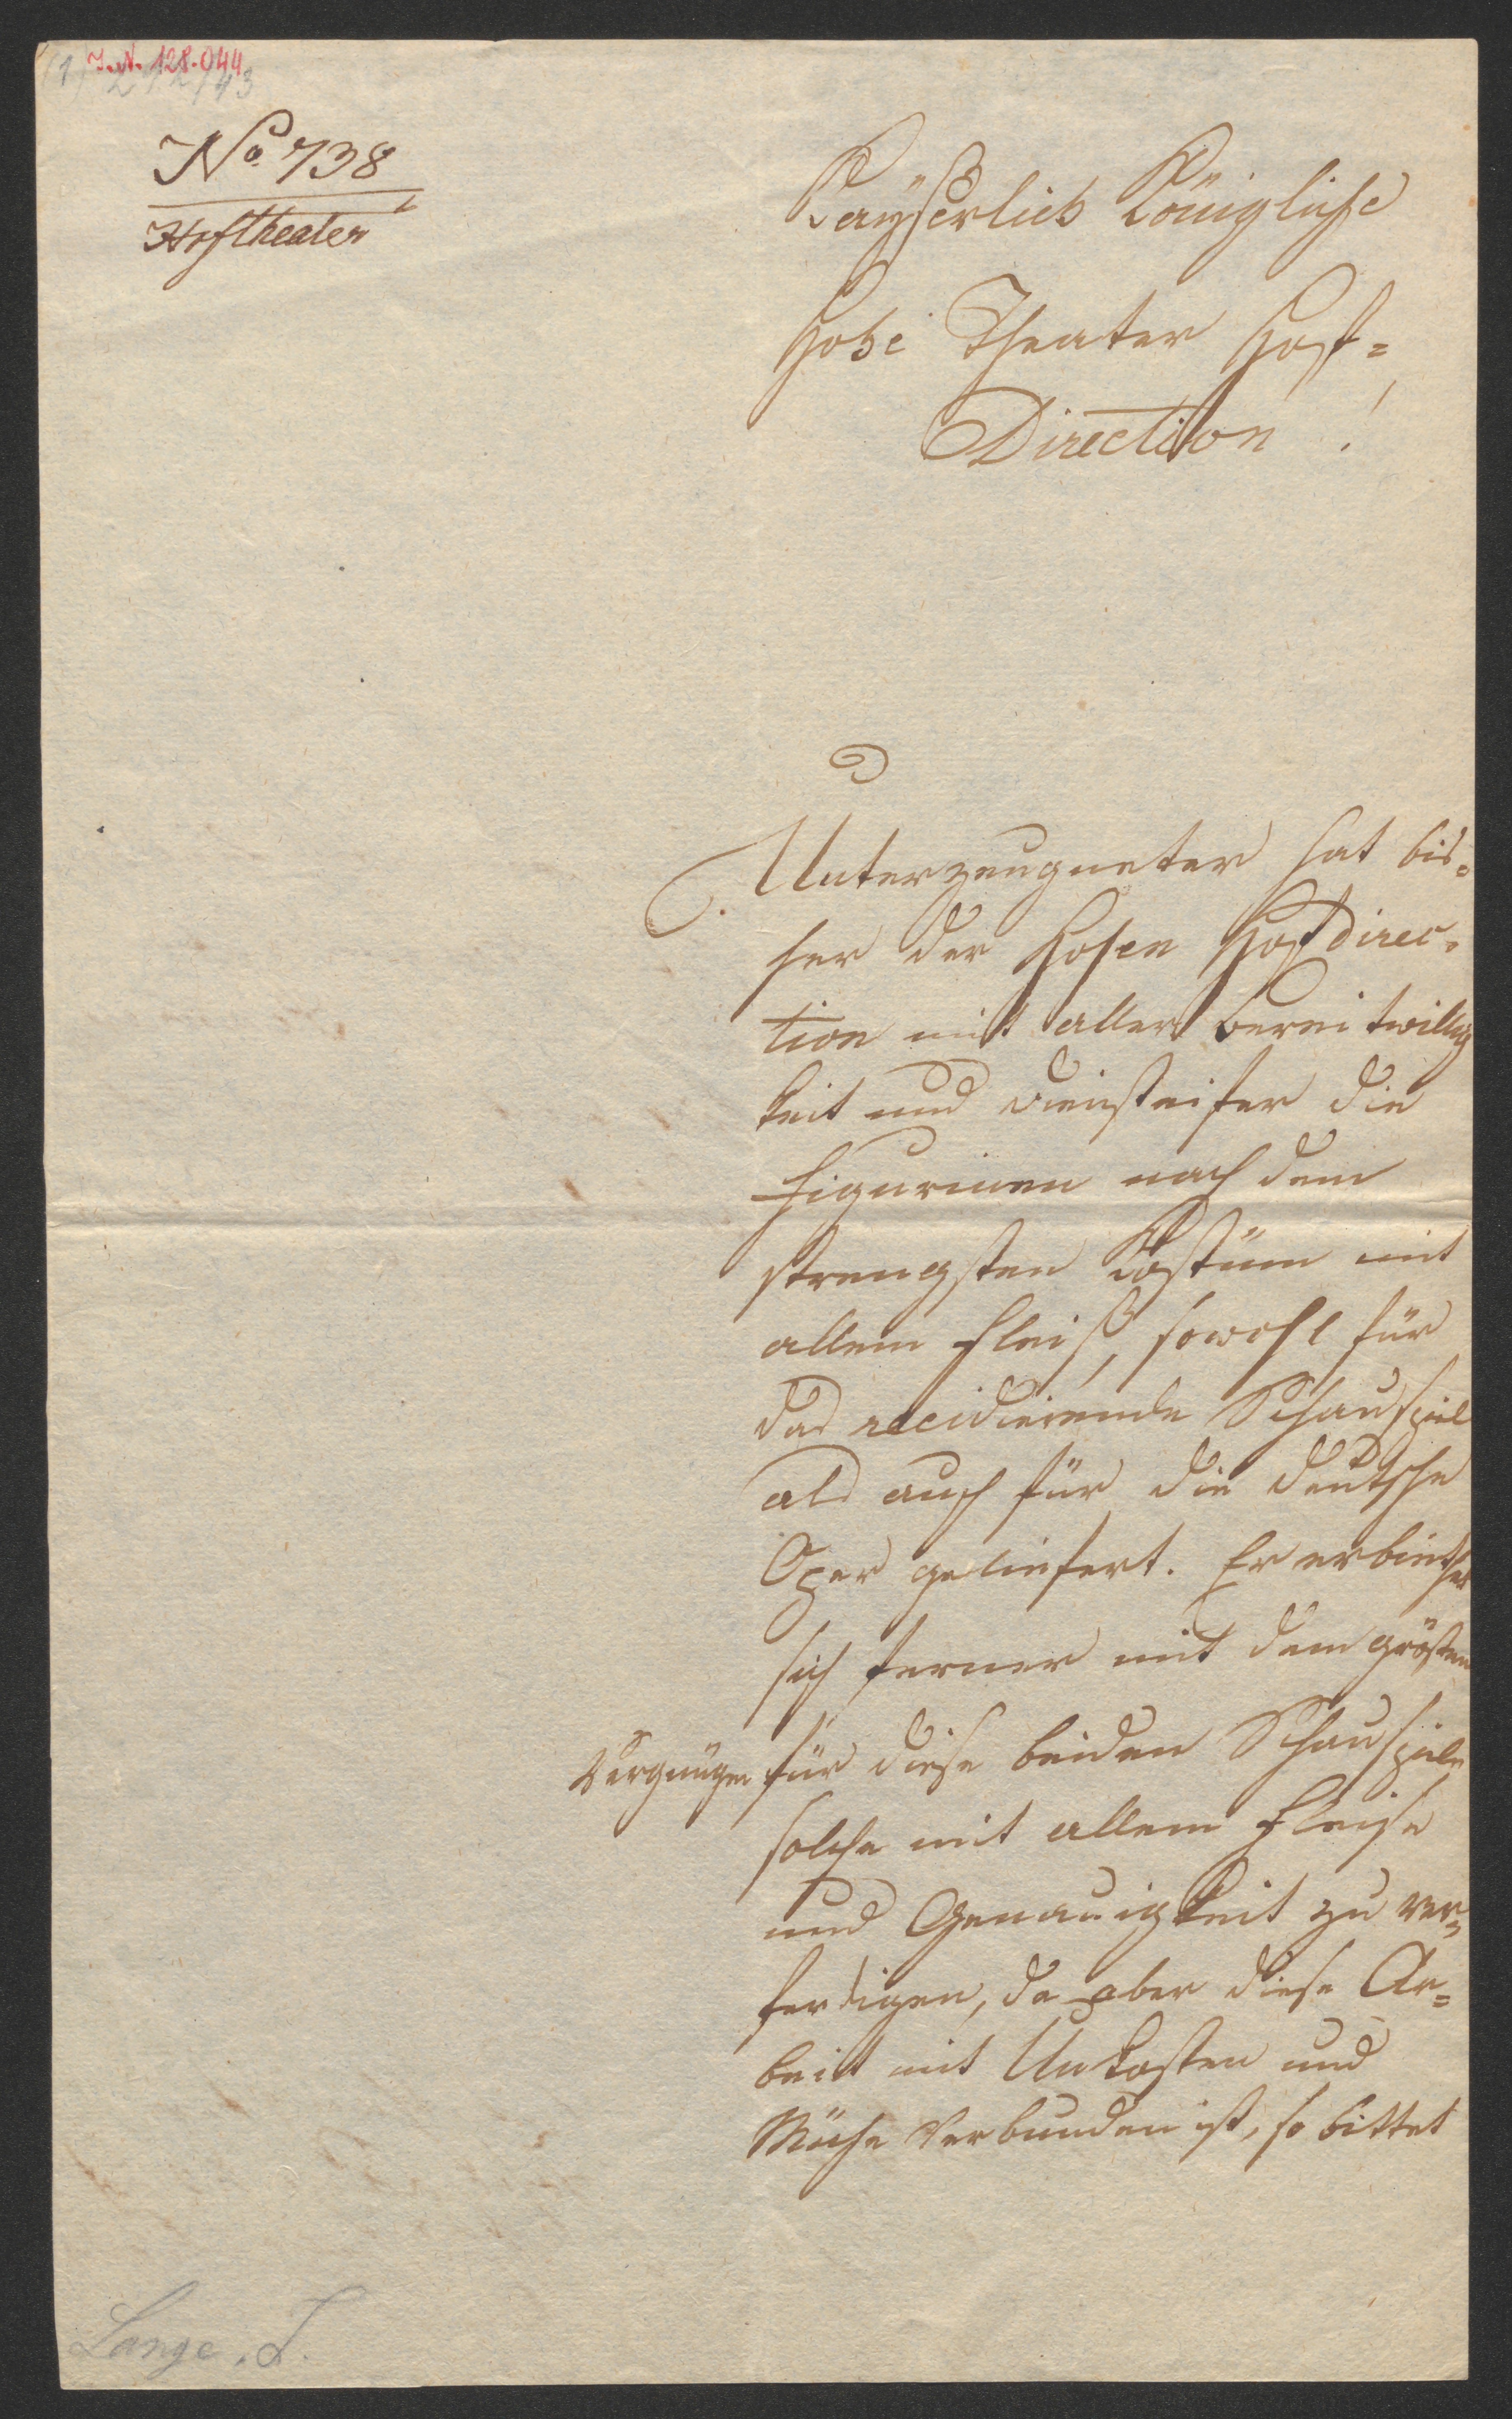 J.N. 128.044
No. 738
Hoftheater
Kayserlich Königliche
Hohe Theater Hof=
Direction !
Unterzeugneter hat bis=
her der hohen Hof Direc=
tion mit aller Bereitwillig
keit und Diensteifer die
Figurinen nach dem
strengsten Kostüm mit
allem Fleiß, sowohl für
das recidierende Schauspiel
als auch für die deutsche
Oper geliefert. Er erbiethet
sich ferner mit dem grösten
Vergnügen für diese beiden Schauspiele
solche mit allem Fleiße
und Genauigkeit zu ver=
fertigen, da aber diese Ar=
beit mit Unkosten und
Mühe verbunden ist, so bittet
Lange. L.